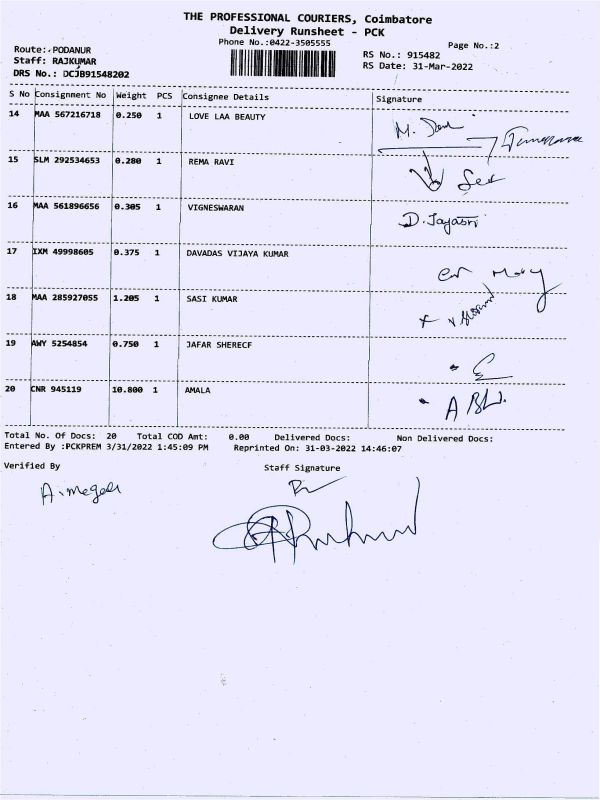 THE PROFESSIONAL COURIERS, Coimbatore
Delivery Runsheet - PCK
Phone No.:0422-3505555
Page No.:2
Route:- PODANUR
RS No.: 915482
Staff: RAJKUMAR
RS Date: 31-Mar-2022
DRS No.: DCJB91548202
S No Consignment No Weight PCS Consignee Details Signature
14 MAA 567216718 0.250 1 LOVE LAA BEAUTY
15 SLM 292534653 0.280 1 REMA RAVI
16 MAA 561896656 0.305 1 VIGNESWARAN D. Jayasri
17 IXM 49998605 0.375 1 DAVADAS VIJAYA KUMAR
18 MAA 285927055 1.205 1 SASI KUMAR
19 AWY 5254854 0.750 1 JAFAR SHERECF
20 CNR 945119 10.800 1 AMALA
Total No. Of Docs: 20 Total COD Amt: 0.00 Delivered Docs: Non Delivered Docs:
Entered By :PCKPREM 3/31/2022 1:45:09 PM Reprinted On: 31-03-2022 14:46:07
Verified By Staff Signature